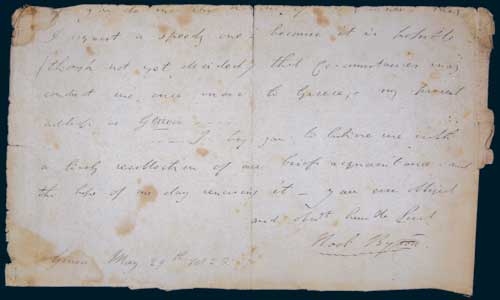 I request a speedy one because it is probable
(though not yet decided) that Circumstances may
conduct me once more to Greece; my present
address is Genoa
I beg you to believe me with
a lively recollection of our brief acquaintance and
the hope of one day renewing it – your ever obliged
and obdt humble Servt
Noel Byron
Genoa May 29th 1823